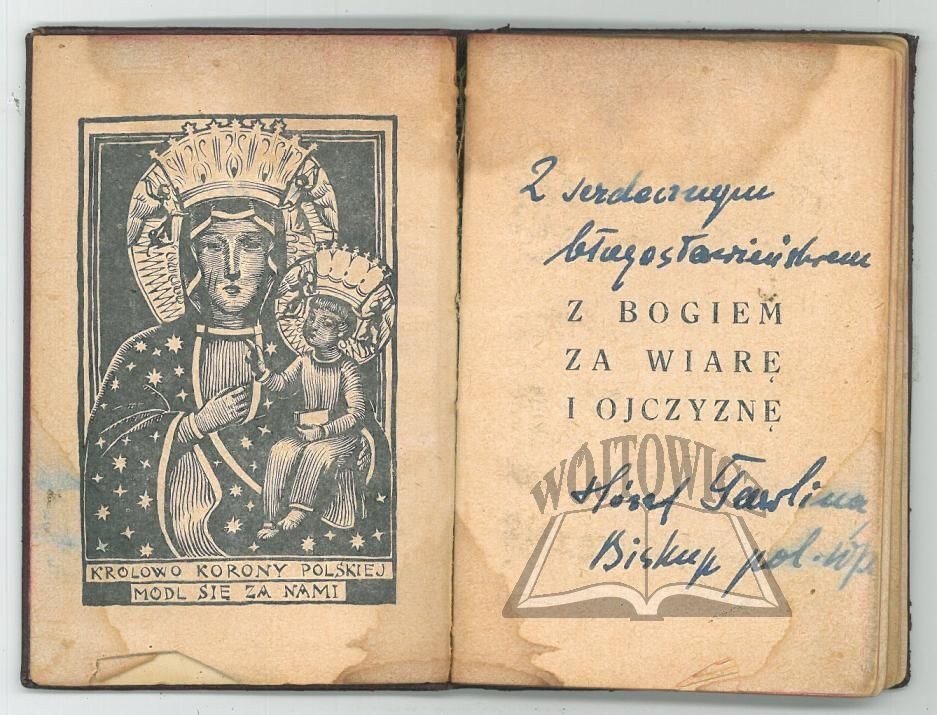 KRÓLOWO KORONY POLSKIEJ
MÓDL SIĘ ZA NAMI
Z serdecznym
błogosławieństwem
Z BOGIEM
ZA WIARĘ
I OJCZYZNĘ
WÓJTOWICZ
Józef Gawlina
Biskup pol.